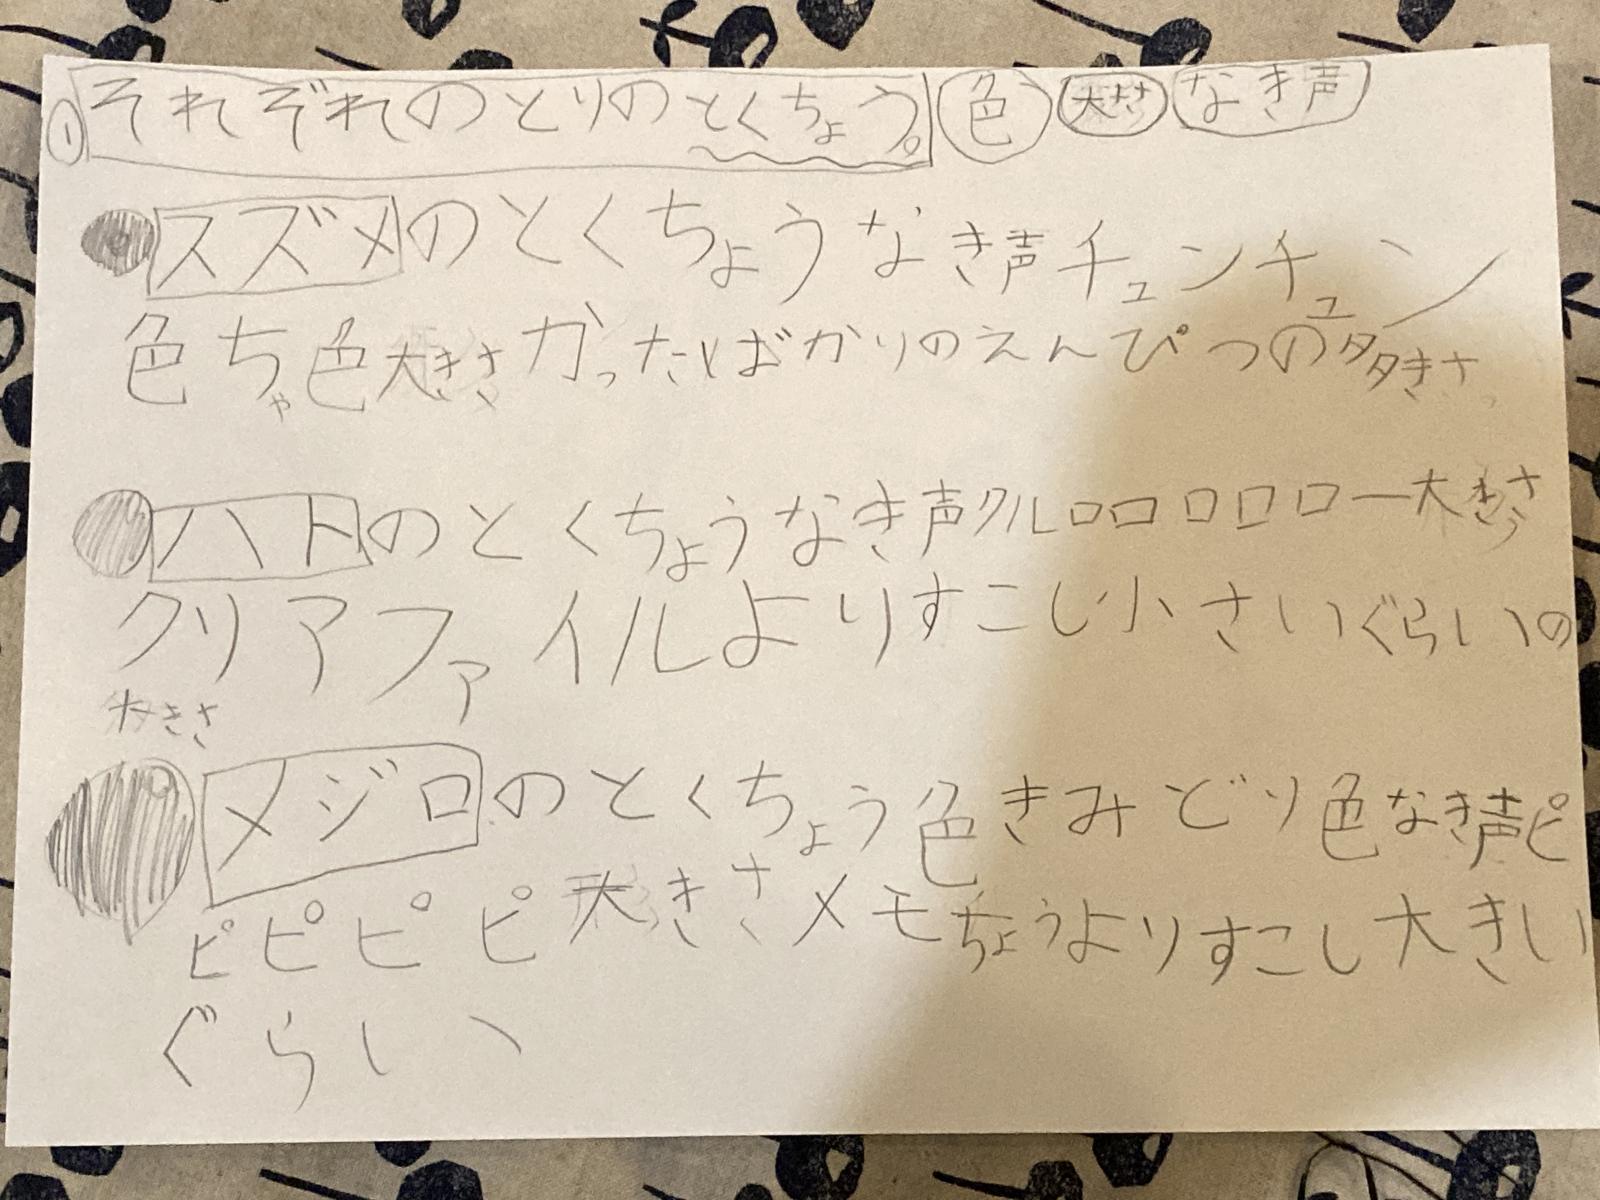 ① それぞれのとりのとくちょう。 色 大きさ なき声
スズメのとくちょうなき声チュンチュン
色ちゃ色大きさかったばかりのえんぴつの多きさ
ハトのとくちょうなき声クルロロロロロー大きさ
クリアファイルよりすこし小さいぐらいの
大きさ
メジロのとくちょう色きみどり色なき声ピ
ピピピピ大きさメモちょうよりすこし大きい
ぐらい